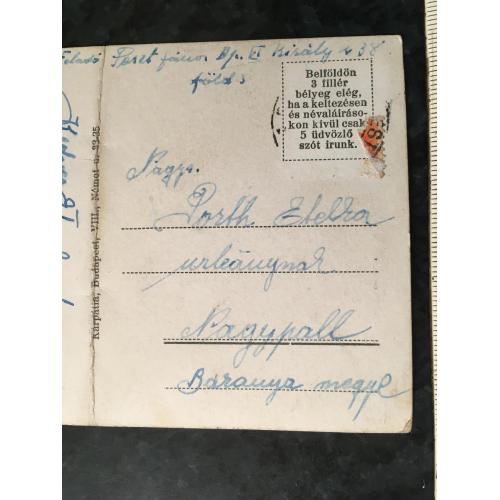 Feladó Peset János Bp. VI Király u 38
föld 3
Belföldön
3 fillér
bélyeg elég,
ha a keltezésen
és névaláíráso-
kon kívül csak
5 üdvözlő
szót írunk.
Nagys.
Porth Etelka
urleánynak
Nagypall
Baranya megye
Kárpátia, Budapest, VIII., Német u. 33-35